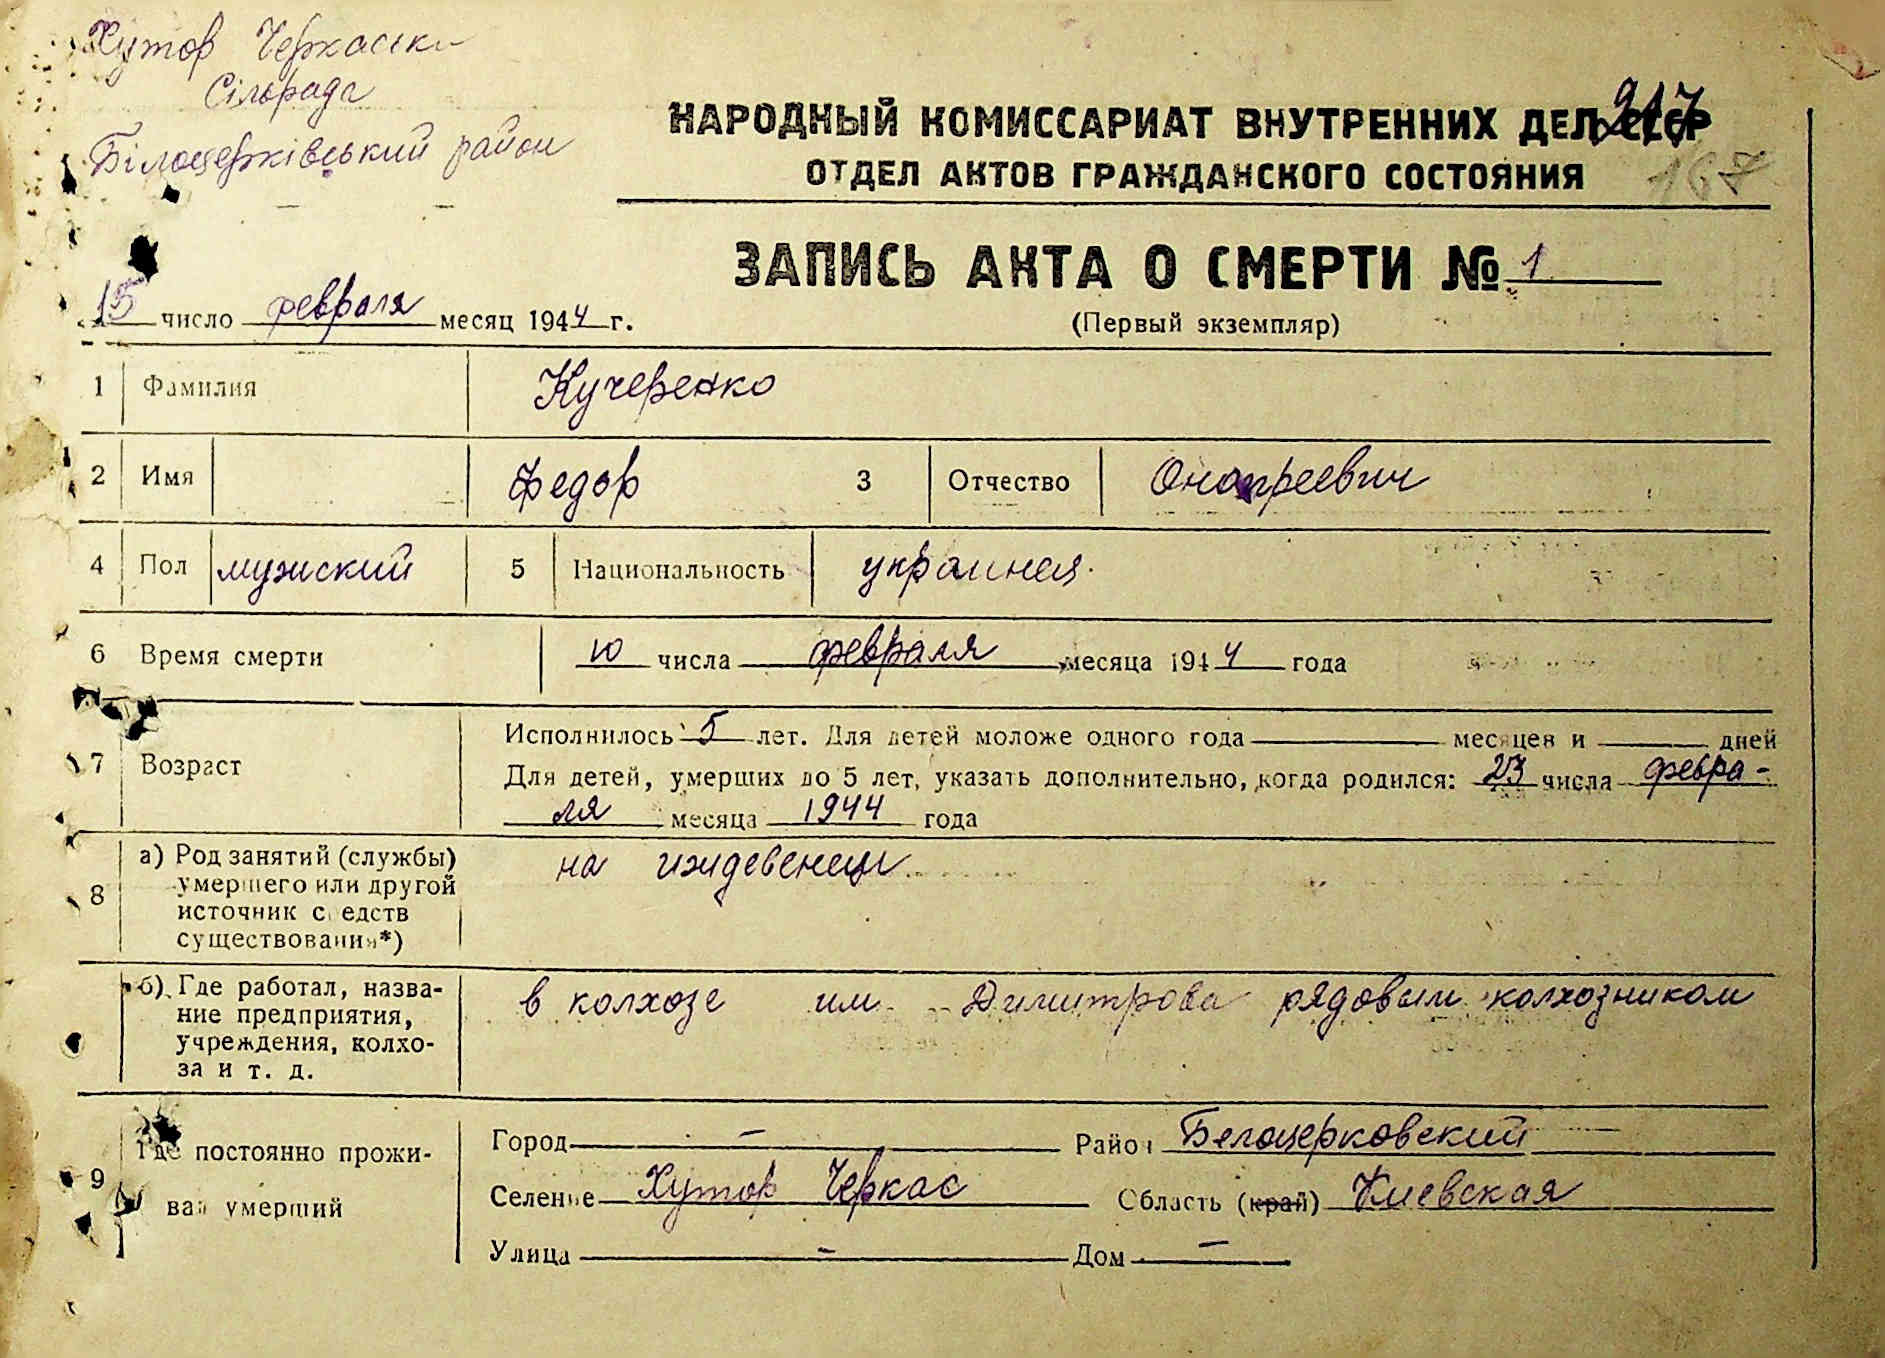 Хутор Черкаська
Сільрада
Білоцерківський район
217
НАРОДНЫЙ КОМИССАРИАТ ВНУТРЕННИХ ДЕЛ СССР
ОТДЕЛ АКТОВ ГРАЖДАНСКОГО СОСТОЯНИЯ
167
ЗАПИСЬ АКТА О СМЕРТИ № 1
15 число февраля месяц 1944 г.
(Первый экземпляр)
1 Фамилия Кучеренко
2 Имя Федор 3 Отчество Оноприевич
4 Пол мужский 5 Национальность украинец.
6 Время смерти 10 числа февраля месяца 1944 года
7 Возраст
Исполнилось 5 лет. Для детей моложе одного года месяцев и дней
Для детей, умерших до 5 лет, указать дополнительно, когда родился: 23 числа февра-
ля месяца 1944 года
8 а) Род занятий (службы) на иждевенеци
умершего или другой
источник средств
существования*)
б) Где работал, назва- в колхозе им Димитрова рядовым колхозником
ние предприятия,
учреждения, колхо-
за и т. д.
9 Где постоянно прожи-
вал умерший
Город – Район Белоцерковский
Селение Хутор Черкас Область (край) Киевская
Улица – Дом –